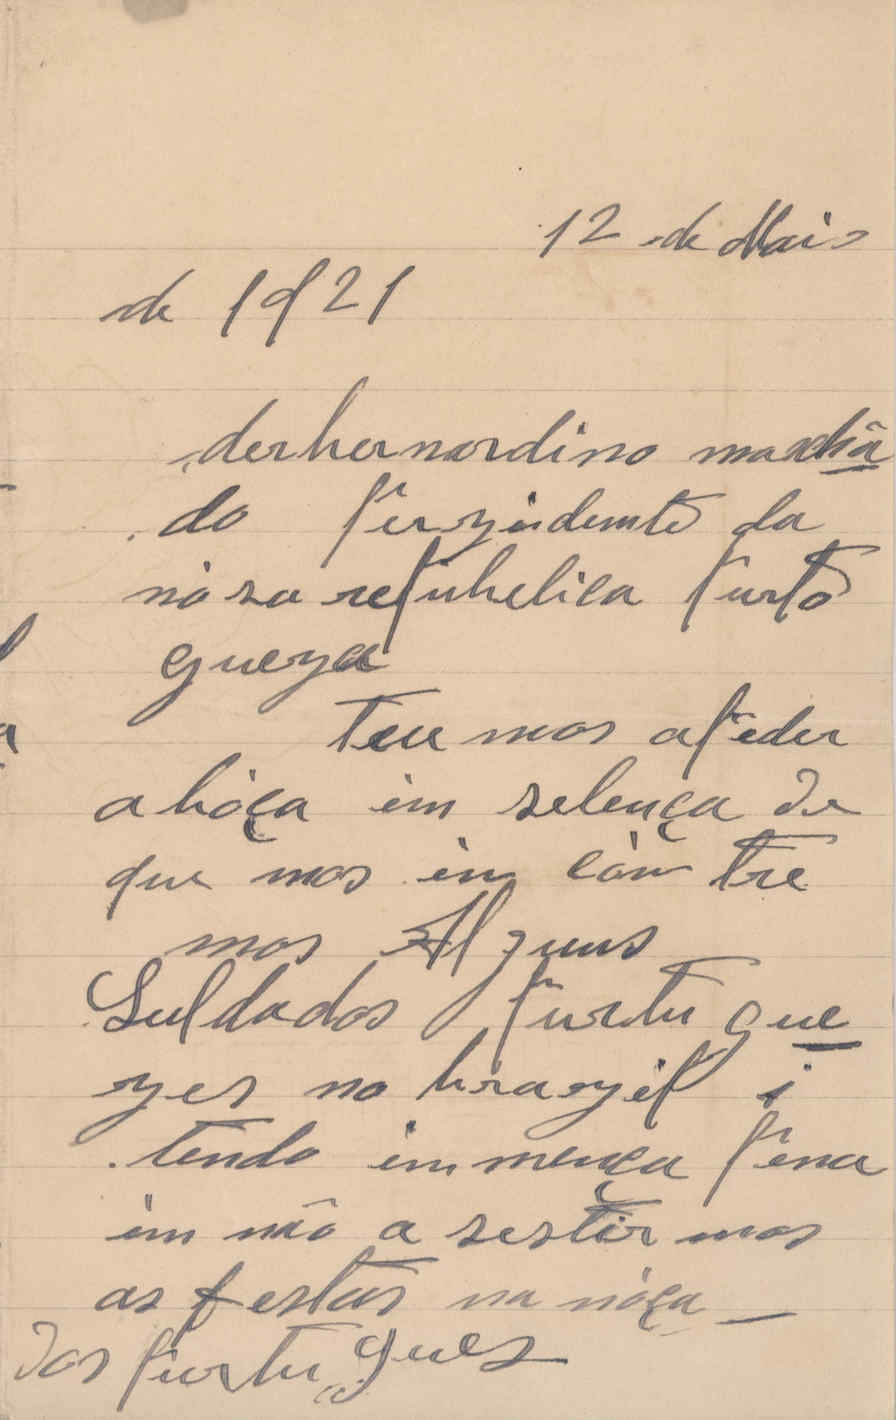 12 de Maio
de 1921
derbernardino machã
do perzidemte da
nósa repubelica purto
gueza
Teu mos apeder
a bóça im selença de
que nos in cóm tre
mos Alguns
Suldados purtu gue
zes no brazil i
tendo immença pena
im não a sestir mos
as festas na nóça
dos purtu gues